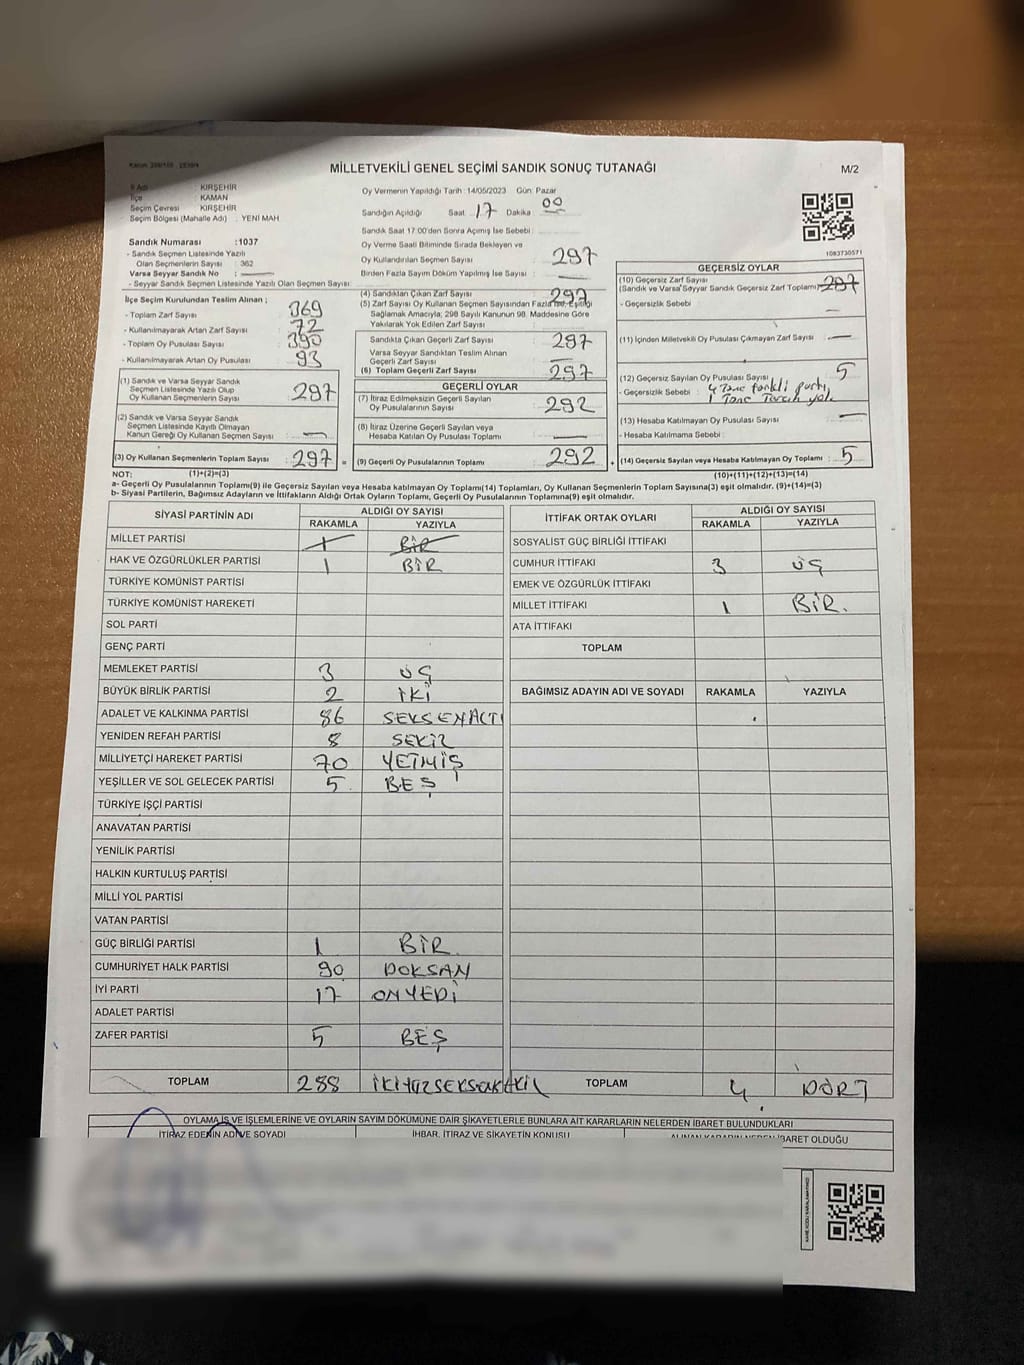 MİLLETVEKİLİ GENEL SEÇİMİ SANDIK SONUÇ TUTANAĞI
M/2
İl Adı : KIRŞEHİR
İlçe : KAMAN
Seçim Çevresi : KIRŞEHİR
Seçim Bölgesi (Mahalle Adı) : YENİ MAH
Oy Vermenin Yapıldığı Tarih : 14/05/2023 Gün: Pazar
Sandığın Açıldığı Saat : 17 Dakika : 00
Sandık Saat 17:00'den Sonra Açımış İse Sebebi :
Oy Verme Saati Bitiminde Sırada Bekleyen ve
Oy Kullandırılan Seçmen Sayısı : 297
Birden Fazla Sayım Döküm Yapılmış İse Sayısı :
1083730571
Sandık Numarası : 1037
- Sandık Seçmen Listesinde Yazılı
Olan Seçmenlerin Sayısı : 362
Varsa Seyyar Sandık No :
- Seyyar Sandık Seçmen Listesinde Yazılı Olan Seçmen Sayısı :
İlçe Seçim Kurulundan Teslim Alınan ;
- Toplam Zarf Sayısı : 369
- Kullanılmayarak Artan Zarf Sayısı : 72
- Toplam Oy Pusulası Sayısı : 390
- Kullanılmayarak Artan Oy Pusulası : 93
(1) Sandık ve Varsa Seyyar Sandık
Seçmen Listesinde Yazılı Olup
Oy Kullanan Seçmenlerin Sayısı : 297
(2) Sandık ve Varsa Seyyar Sandık
Seçmen Listesinde Kayıtlı Olmayan
Kanun Gereği Oy Kullanan Seçmen Sayısı : —
(3) Oy Kullanan Seçmenlerin Toplam Sayısı : 297 =
(4) Sandıktan Çıkan Zarf Sayısı : 297
(5) Zarf Sayısı Oy Kullanan Seçmen Sayısından Fazla İse, Eşitliği
Sağlamak Amacıyla; 298 Sayılı Kanunun 98. Maddesine Göre
Yakılarak Yok Edilen Zarf Sayısı :
Sandıkta Çıkan Geçerli Zarf Sayısı : 297
Varsa Seyyar Sandıktan Teslim Alınan
Geçerli Zarf Sayısı : —
(6) Toplam Geçerli Zarf Sayısı : 297
GEÇERLİ OYLAR
(7) İtiraz Edilmeksizin Geçerli Sayılan
Oy Pusulalarının Sayısı : 292
(8) İtiraz Üzerine Geçerli Sayılan veya
Hesaba Katılan Oy Pusulası Toplamı : —
(9) Geçerli Oy Pusulalarının Toplamı : 292 +
GEÇERSİZ OYLAR
(10) Geçersiz Zarf Sayısı
(Sandık ve Varsa Seyyar Sandık Geçersiz Zarf Toplamı) : 297
- Geçersizlik Sebebi : —
(11) İçinden Milletvekili Oy Pusulası Çıkmayan Zarf Sayısı : —
(12) Geçersiz Sayılan Oy Pusulası Sayısı : 5
- Geçersizlik Sebebi : 4 Tane farklı parti,
1 Tane Tercih yok.
(13) Hesaba Katılmayan Oy Pusulası Sayısı : —
- Hesaba Katılmama Sebebi :
(14) Geçersiz Sayılan veya Hesaba Katılmayan Oy Toplamı : 5
NOT: (1)+(2)=(3) (10)+(11)+(12)+(13)=(14)
a- Geçerli Oy Pusulalarının Toplamı(9) ile Geçersiz Sayılan veya Hesaba katılmayan Oy Toplamı(14) Toplamları, Oy Kullanan Seçmenlerin Toplam Sayısına(3) eşit olmalıdır. (9)+(14)=(3)
b- Siyasi Partilerin, Bağımsız Adayların ve İttifakların Aldığı Ortak Oyların Toplamı, Geçerli Oy Pusulalarının Toplamına(9) eşit olmalıdır.
SİYASİ PARTİNİN ADI ALDIĞI OY SAYISI
RAKAMLA YAZIYLA
MİLLET PARTİSİ 1 BİR
HAK VE ÖZGÜRLÜKLER PARTİSİ 1 BİR
TÜRKİYE KOMÜNİST PARTİSİ
TÜRKİYE KOMÜNİST HAREKETİ
SOL PARTİ
GENÇ PARTİ
MEMLEKET PARTİSİ 3 ÜÇ
BÜYÜK BİRLİK PARTİSİ 2 İKİ
ADALET VE KALKINMA PARTİSİ 86 SEKSENALTI
YENİDEN REFAH PARTİSİ 8 SEKİZ
MİLLİYETÇİ HAREKET PARTİSİ 70 YETMİŞ
YEŞİLLER VE SOL GELECEK PARTİSİ 5 BEŞ
TÜRKİYE İŞÇİ PARTİSİ
ANAVATAN PARTİSİ
YENİLİK PARTİSİ
HALKIN KURTULUŞ PARTİSİ
MİLLİ YOL PARTİSİ
VATAN PARTİSİ
GÜÇ BİRLİĞİ PARTİSİ 1 BİR
CUMHURİYET HALK PARTİSİ 90 DOKSAN
İYİ PARTİ 17 ONYEDİ
ADALET PARTİSİ
ZAFER PARTİSİ 5 BEŞ
TOPLAM 288
İTTİFAK ORTAK OYLARI ALDIĞI OY SAYISI
RAKAMLA YAZIYLA
SOSYALİST GÜÇ BİRLİĞİ İTTİFAKI
CUMHUR İTTİFAKI 3 ÜÇ
EMEK VE ÖZGÜRLÜK İTTİFAKI
MİLLET İTTİFAKI 1 BİR.
ATA İTTİFAKI
TOPLAM
BAĞIMSIZ ADAYIN ADI VE SOYADI RAKAMLA YAZIYLA
TOPLAM 4 DÖRT
OYLAMA İŞ VE İŞLEMLERİNE VE OYLARIN SAYIM DÖKÜMÜNE DAİR ŞİKAYETLERLE BUNLARA AİT KARARLARIN NELERDEN İBARET BULUNDUKLARI
İTİRAZ EDENİN ADI VE SOYADI İHBAR, İTİRAZ VE ŞİKAYETİN KONUSU ALINAN KARARIN NEDEN İBARET OLDUĞU